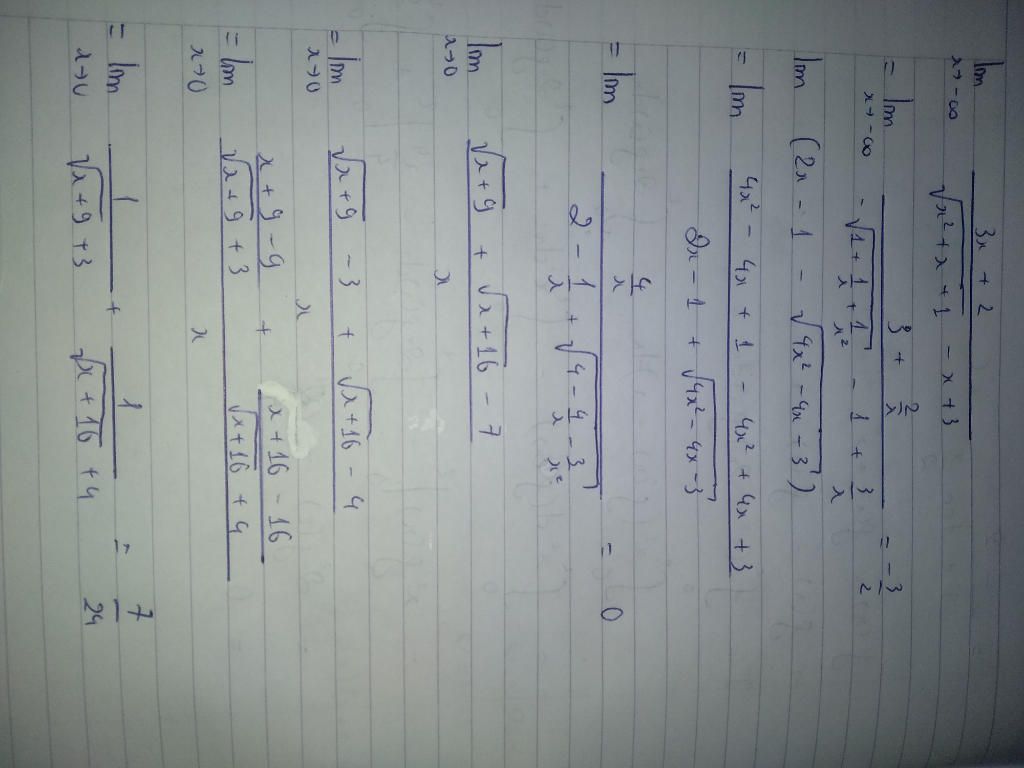 lim x→-∞ (3x + 2)/(√(x² + x + 1) - x + 3)
= lim x→-∞ (3 + 2/x)/(-√(1 + 1/x + 1/x²) - 1 + 3/x) = -3/2
lim (2x - 1 - √(4x² - 4x - 3))
= lim (4x² - 4x + 1 - 4x² + 4x + 3)/(2x - 1 + √(4x² - 4x - 3))
= lim (4/x)/(2 - 1/x + √(4 - 4/x - 3/x²)) = 0
lim x→0 (√(x + 9) + √(x + 16) - 7)/x
= lim x→0 (√(x + 9) - 3 + √(x + 16) - 4)/x
= lim x→0 ((x + 9 - 9)/(√(x + 9) + 3) + (x + 16 - 16)/(√(x + 16) + 4))/x
= lim x→0 1/(√(x + 9) + 3) + 1/(√(x + 16) + 4) = 7/24